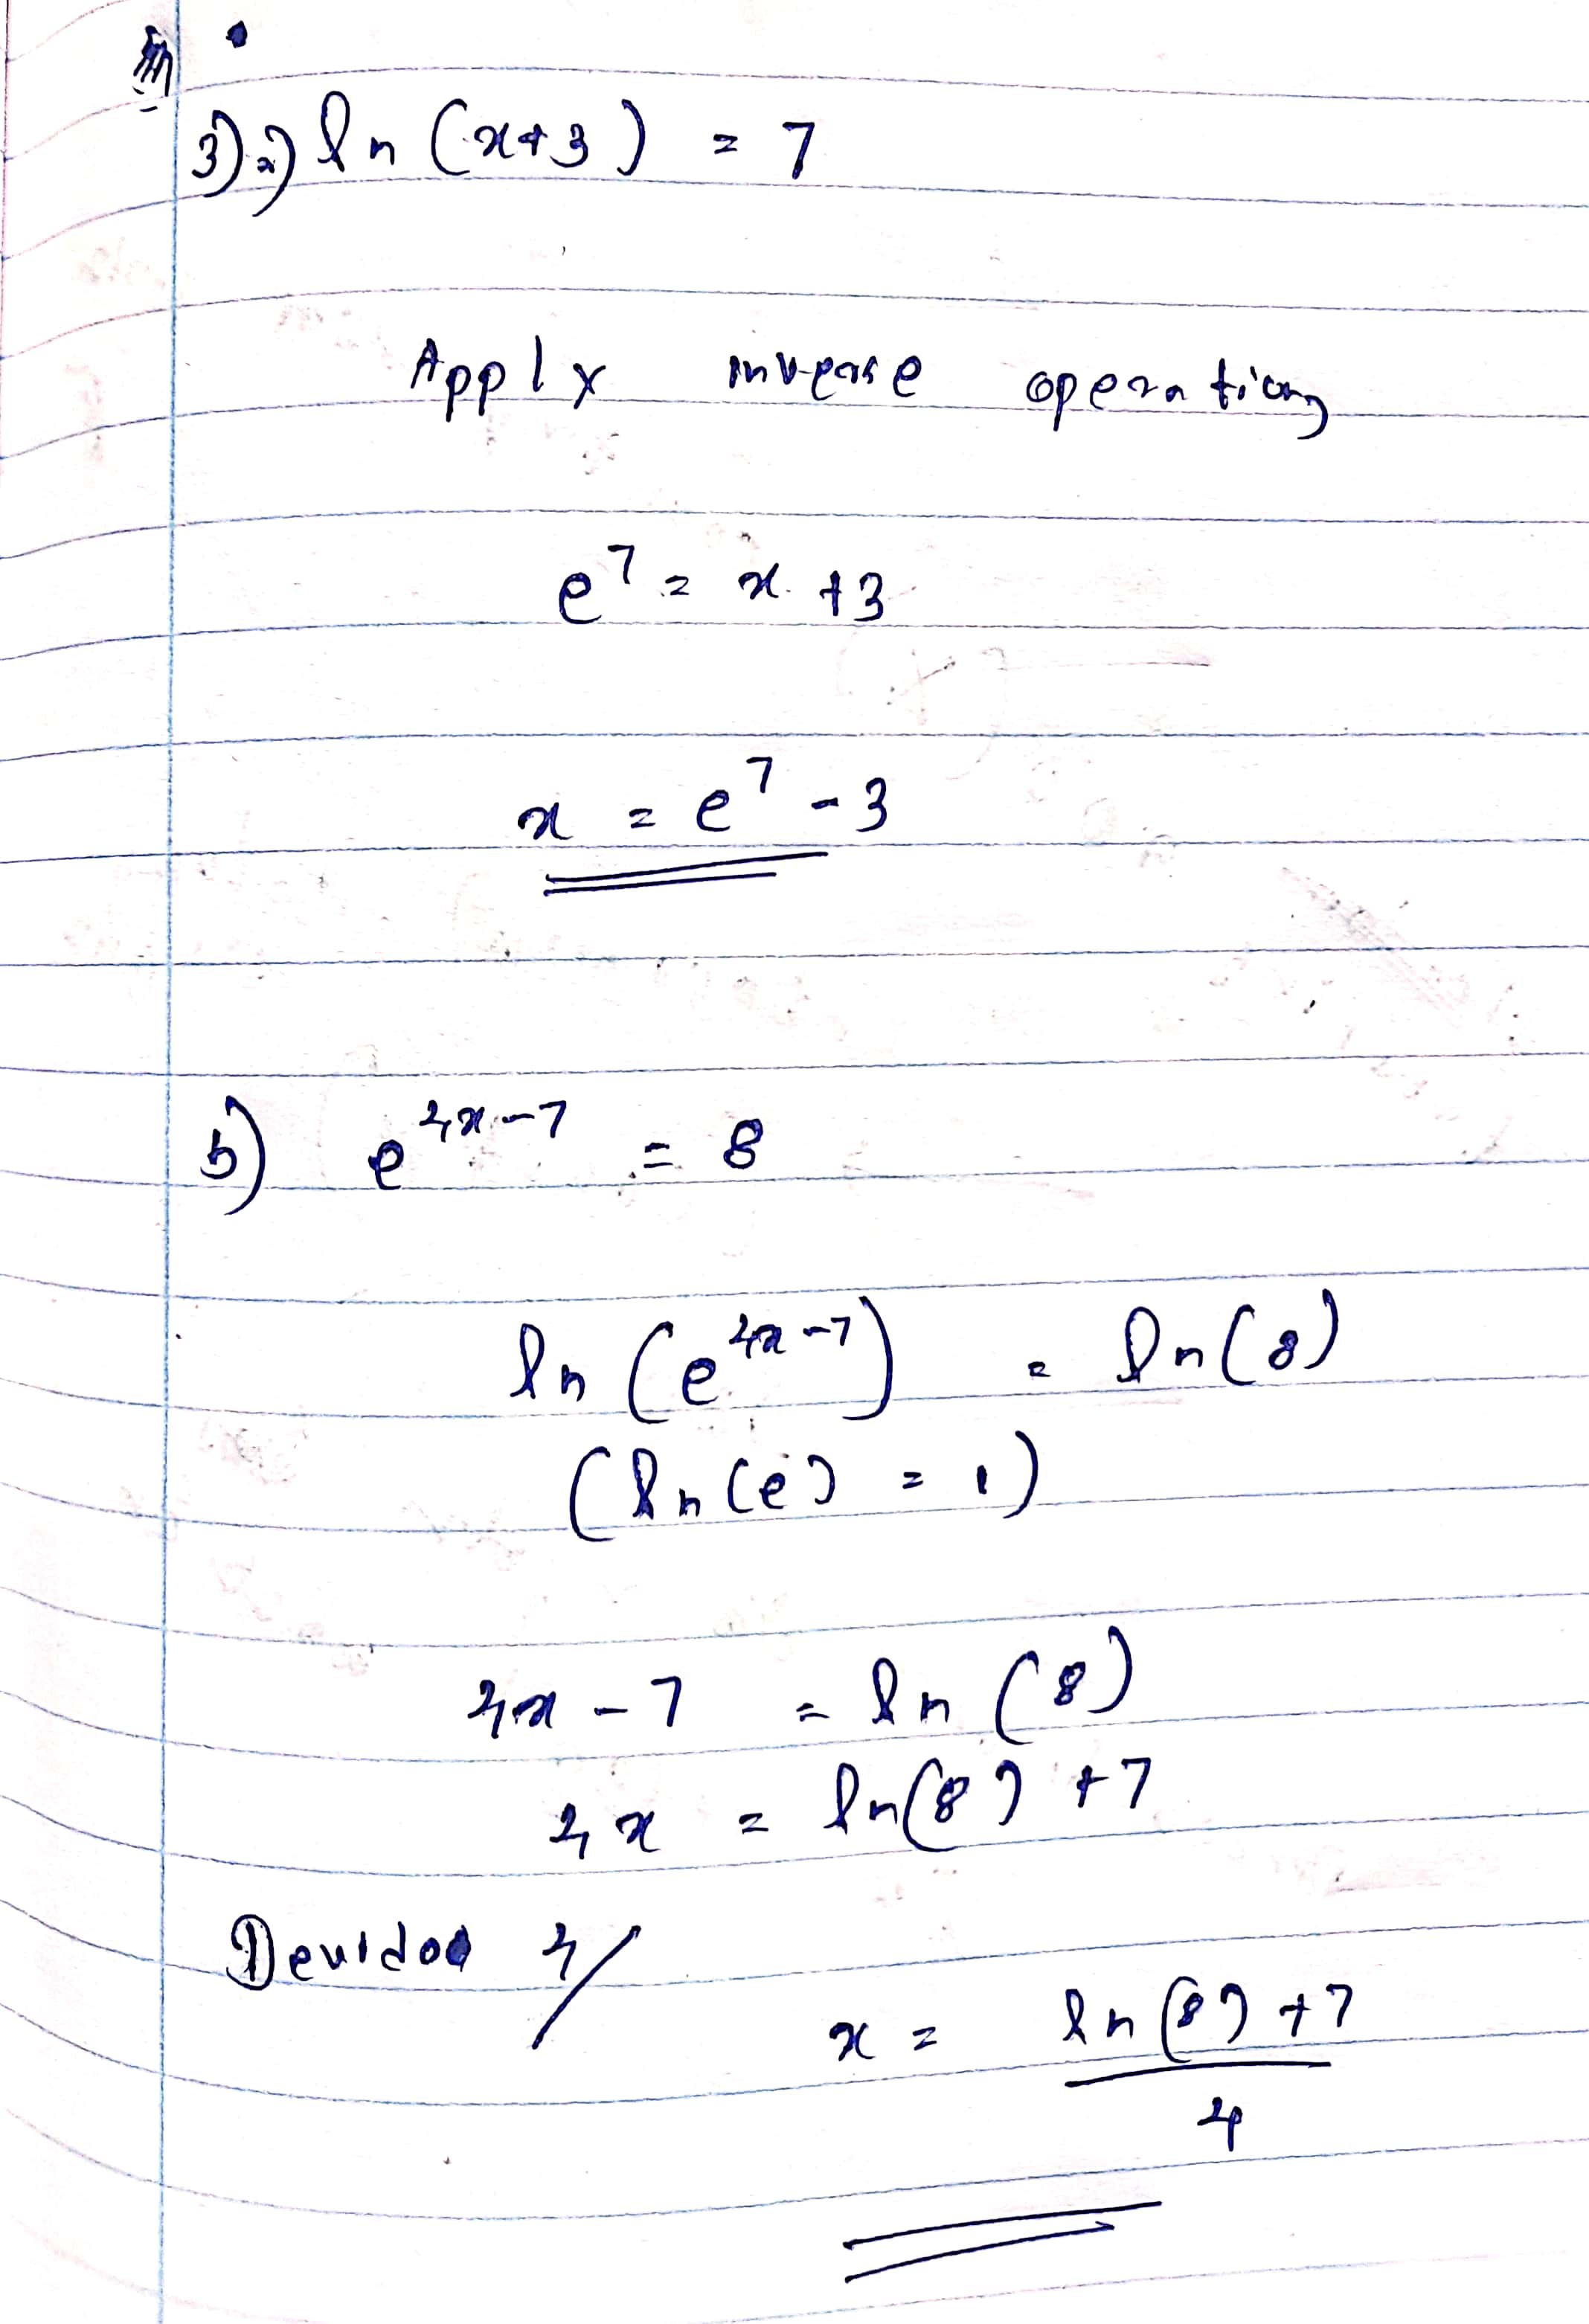 3) a) ln (x+3) = 7
Apply inverse operation
e^7 = x + 3
x = e^7 - 3
b) e^{4x-7} = 8
ln (e^{4x-7}) = ln(8)
(ln(e) = 1)
4x - 7 = ln (8)
4x = ln(8) + 7
4/
x = \frac{ln(8) + 7}{4}